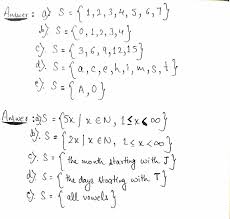 Answer: a). S = {1, 2, 3, 4, 5, 6, 7}
b). S = {0, 1, 2, 3, 4}
c). S = {3, 6, 9, 12, 15}
d). S = {a, c, e, h, i, m, s, t}
e). S = {A, O}
Answer: a) S = {5x / x ∈ N, 1 ≤ x < ∞}
b). S = {2x / x ∈ N, 1 ≤ x < ∞}
c). S = {the month starting with J}
d). S = {the days starting with T}
e). S = {all vowels}